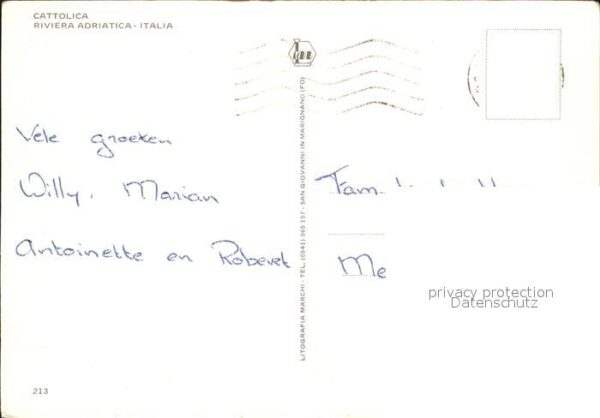 CATTOLICA
RIVIERA ADRIATICA - ITALIA
Vele groeken
Willy, Marian
Antoinette en Roberet
LITOGRAFIA MARCHI - TEL. (0541) 965 157 - SAN GIOVANNI IN MARIGNANO (FO)
Fam
Me
privacy protection
Datenschutz
213